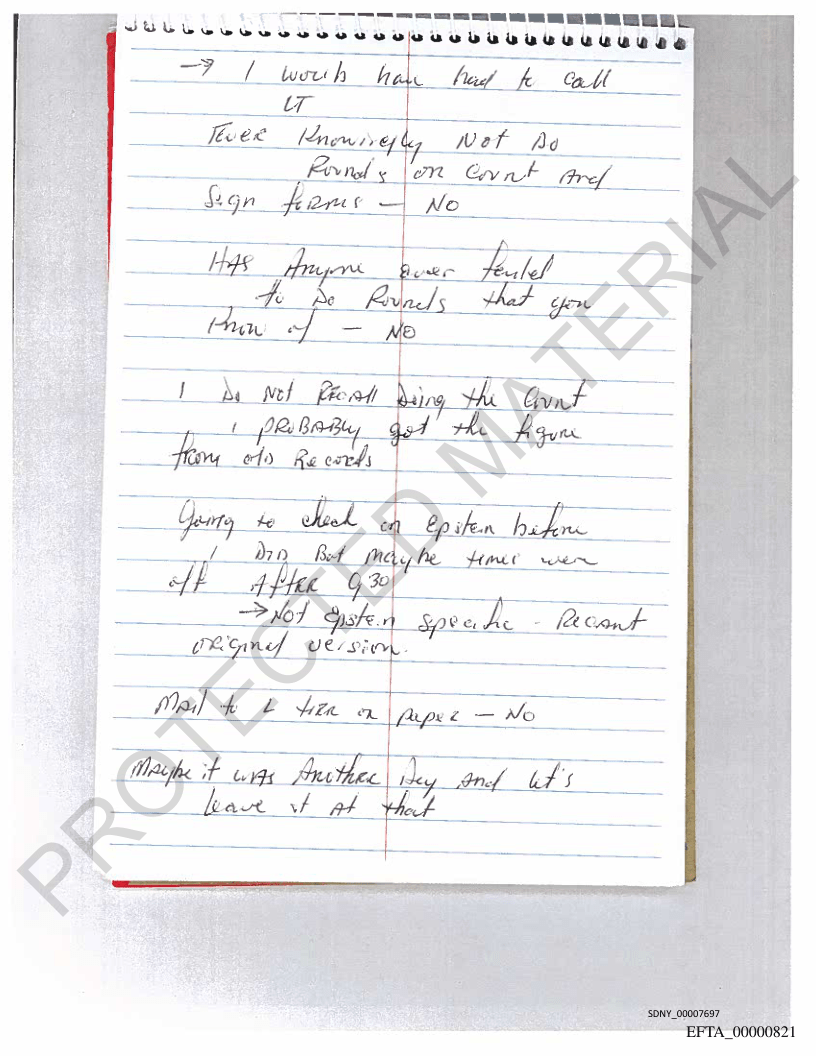 → I would have had to call
LT
Ever Knowingly Not Do
Rounds on Count And
Sign forms — NO
HAS Anyone ever failed
to Do Rounds that you
Know of — NO
I Do Not RecAll doing the Count
I PRoBABly got the figure
from old Records
Going to check on Epstein before
I DID But maybe times were
off AfteR 9:30
→ Not Epstein specific - Recant
original version.
Mail to L tier or paper — No
Maybe it wAs Another Day And let's
leave it At that
PROTECTED MATERIAL
SDNY_00007697
EFTA_00000821